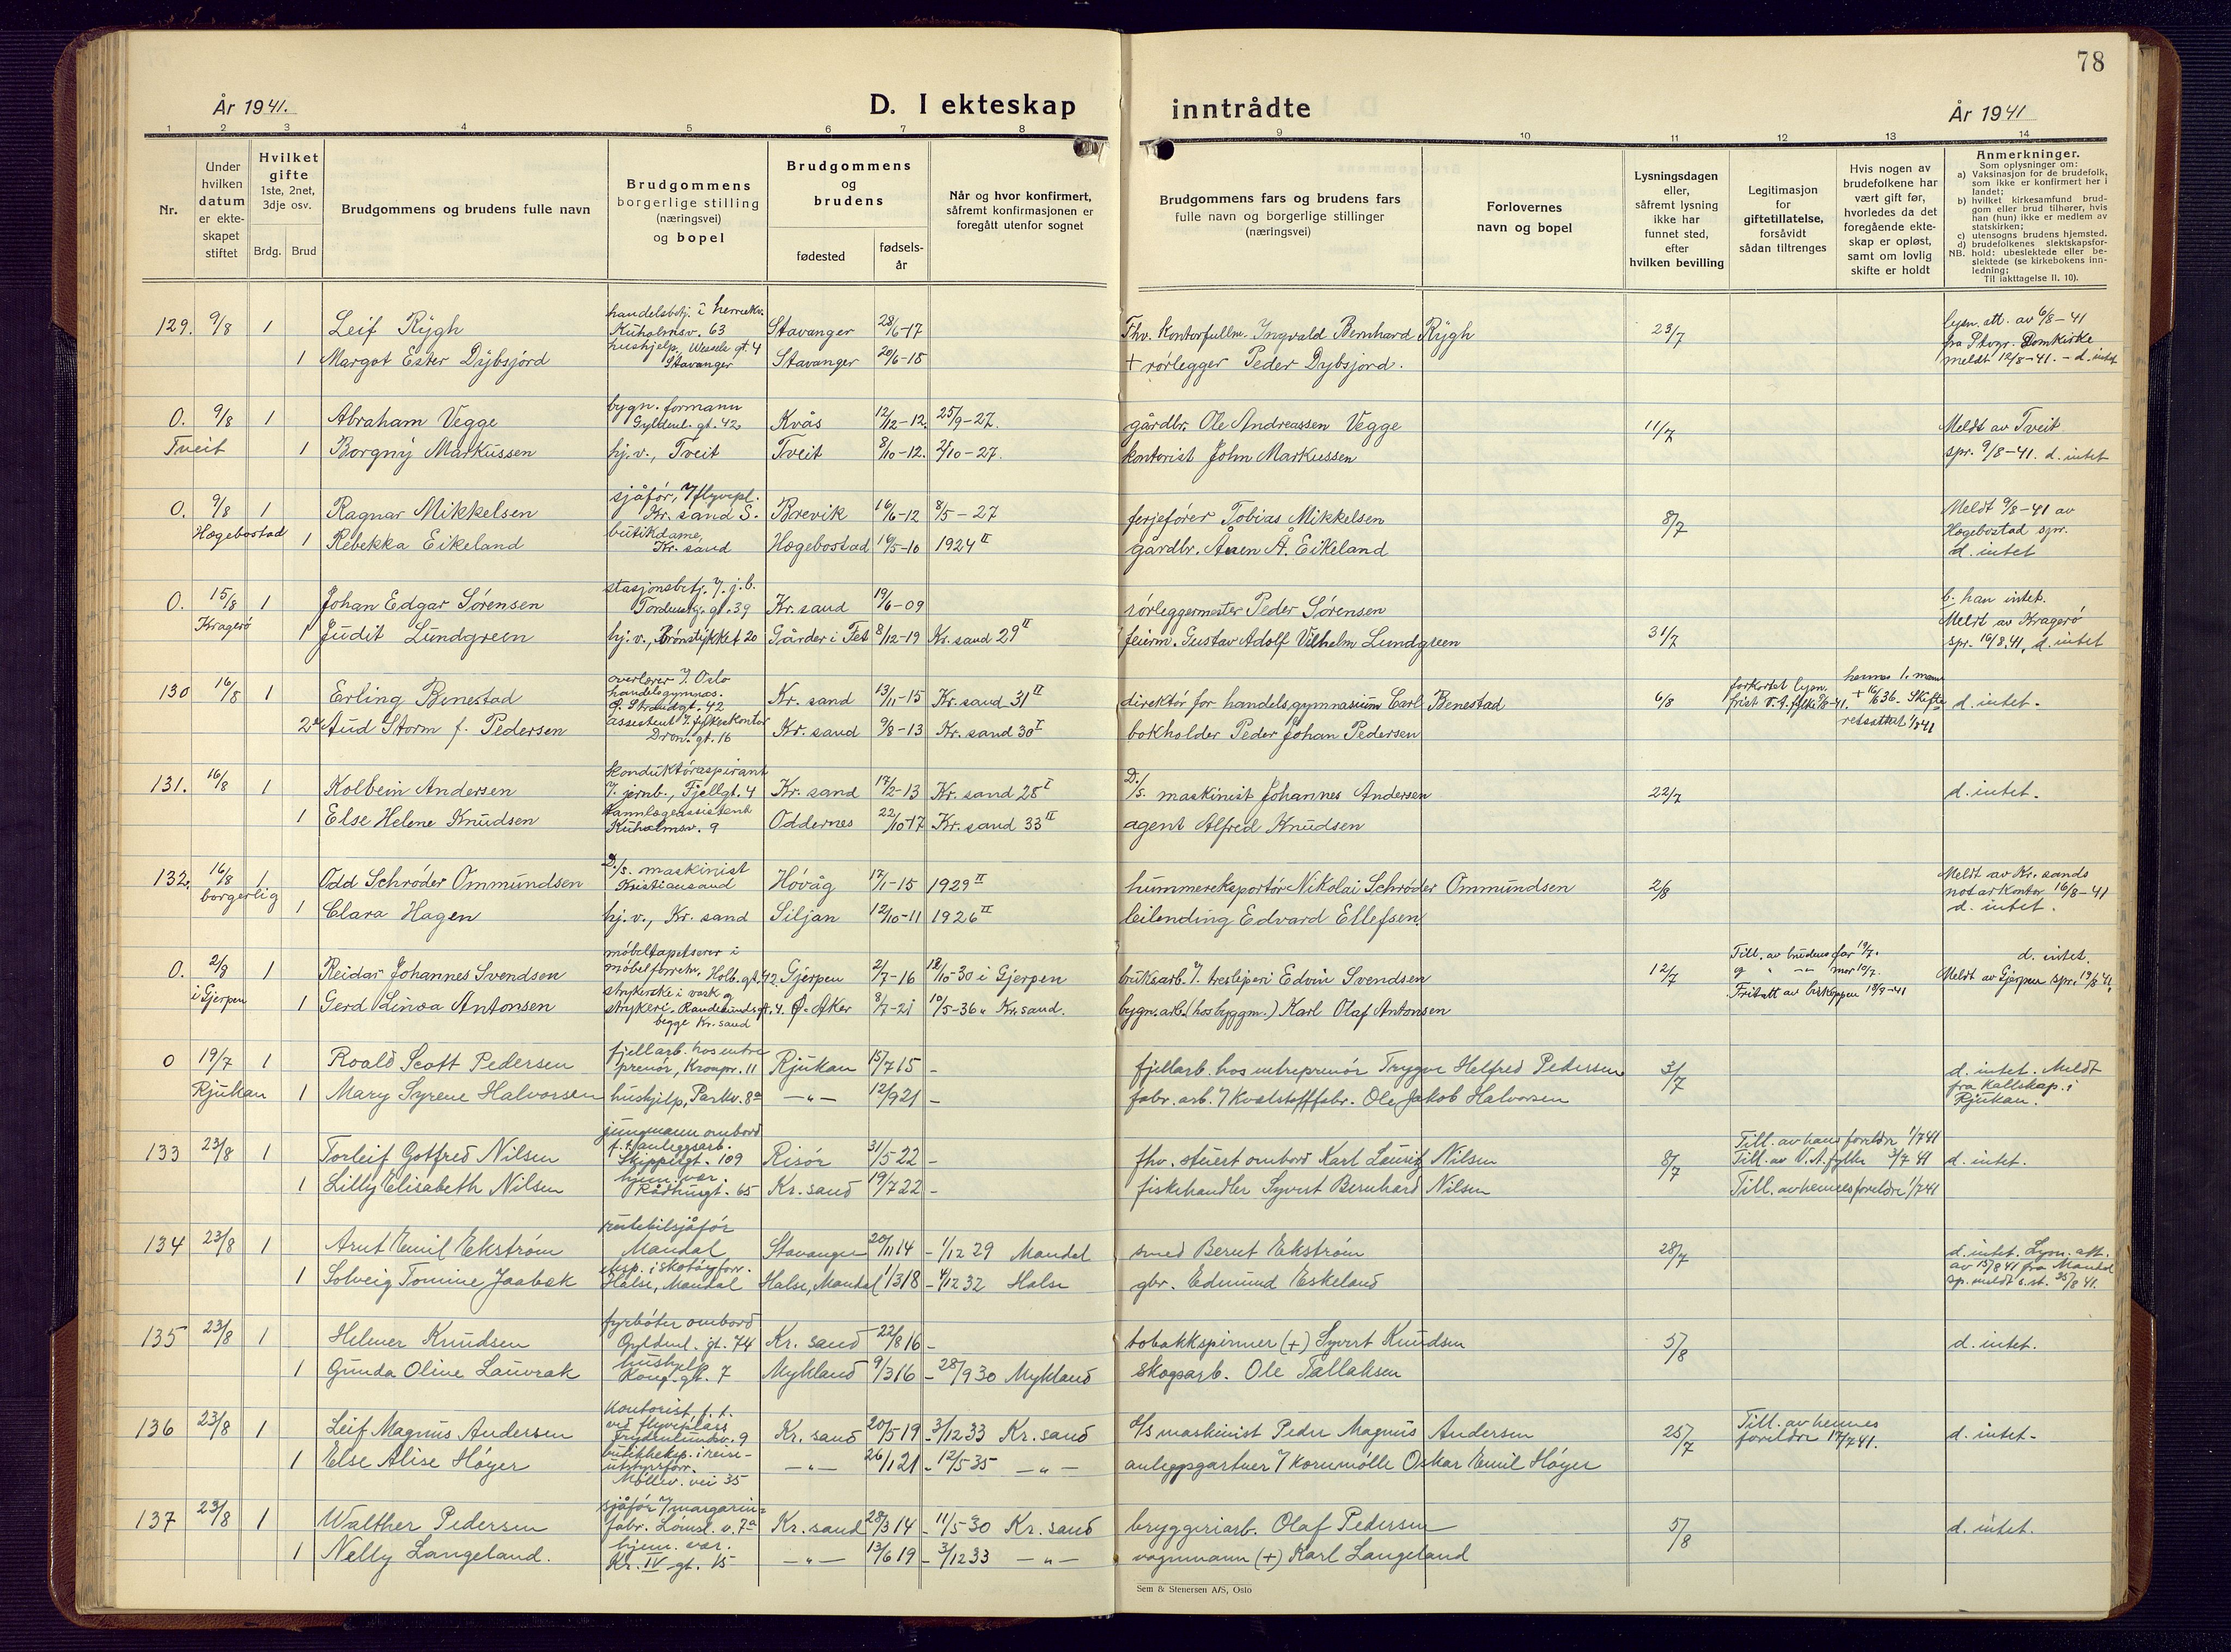 78
År 1941.
D. I ekteskap
inntrådte
År 1941
1 2 3 4 5 6 7 8 9 10 11 12 13 14
Nr.
Under hvilken datum er ekteskapet stiftet
Hvilket gifte 1ste, 2net, 3dje osv.
Brdg. Brud
Brudgommens og brudens fulle navn
Brudgommens borgerlige stilling (næringsvei) og bopel
Brudgommens og brudens
fødested
fødsels-år
Når og hvor konfirmert, såfremt konfirmasjonen er foregått utenfor sognet
Brudgommens fars og brudens fars fulle navn og borgerlige stillinger (næringsvei)
Forlovernes navn og bopel
Lysningsdagen eller, såfremt lysning ikke har funnet sted, efter hvilken bevilling
Legitimasjon for giftetillatelse, forsåvidt sådan tiltrenges
Hvis nogen av brudefolkene har vært gift før, hvorledes da det foregående ekteskap er opløst, samt om lovlig skifte er holdt
Anmerkninger.
Som oplysninger om:
a) Vaksinasjon for de brudefolk, som ikke er konfirmert her i landet;
b) hvilket kirkesamfund brudgom eller brud tilhører, hvis han (hun) ikke er medlem av statskirken;
c) utensogns brudens hjemsted.
d) brudefolkenes slektskapsforhold: ubeslektede eller beslektede (se kirkebokens innledning;
NB. Til iakttagelse II. 10).
129. 9/8 1 Leif Rygh handelsbetj. i herreekv. Kuholmsv. 63 Stavanger 28/6-17 Fhv. kontorfullm. Ingvald Bernhard Rygh 23/7 lysn. att. av 6/8-41 fra Stvgr. Domkirke
1 Margot Ester Dybsjord hushjelp, Wessels gt. 4 Stavanger Stavanger 20/6-18 + rørlegger Peder Dybsjord. meldt 12/8-41. - d. intet
0. 9/8 1 Abraham Vegge bygn. formann Gyldenl. gt. 42 Kvås 12/12-12. 25/9-27. gårdbr. Ole Andreassen Vegge 11/7 Meldt av Tveit
Tveit 1 Borgny Markussen hj. v., Tveit Tveit 8/10-12. 2/10-27. kontorist John Markussen spr. 9/8-41. d. intet
0. 9/8 1 Ragnar Mikkelsen sjåfør, v/ flyvepl. Kr. sand S. Brevik 16/6-12 8/5-27 ferjefører Tobias Mikkelsen 8/7 Meldt 9/8-41 av
Hægebostad 1 Rebekka Eikeland butikdame, Kr. sand Hægebostad 16/5-10 1924 II gårdbr. Ånen Å. Eikeland Hægebostad spr. d. intet
0. 15/8 1 Johan Edgar Sørensen stasjonsbetj. v. j.b. Tordenskj. gt. 39 Kr. sand 19/6-09 rørleggermester Peder Sørensen b. han intet.
Kragerø 1 Judit Lundgreen hj. v., Brønstykket 20 Gårder i Fet 8/12-19 Kr. sand 29 II feierm. Gustav Adolf Vilhelm Lundgreen 31/7 Meldt av Kragerø spr. 16/8.41. d. intet
130 16/8 1 Erling Benestad overlærer v. Oslo handelsgymnas. Ø. Strandgt. 42 Kr. sand 13/11-15 Kr. sand 31 II direktør for handelsgymnasium Carl Benestad 6/8 forkortet lysn. frist V. A. fylke 8/8-41. hennes 1. mann + 16/6 36. Skifte d. intet.
2 Aud Storm f. Pedersen assistent v. fylkeskontor Dron. gt. 16 Kr. sand 9/8-13 Kr. sand 30 I bokholder Peder Johan Pedersen
131. 16/8 1 Kolbein Andersen konduktøraspirant v. jernb., Fjellgt. 4 Kr. sand 17/2-13 Kr. sand 28 I D./S. maskinist Johannes Andersen 22/7 d. intet.
1 Else Helene Knudsen tannlegeassistent Kuholmsv. 9 Oddernes 22/10-17 Kr. sand 33 II agent Alfred Knudsen
132. 16/8 1 Odd Schrøder Ommundsen D./s. maskinist Kristiansand Høvåg 17/1-15 1929 II hummereksportør Nikolai Schrøder Ommundsen 2/8 Meldt av Kr. sands
borgerlig 1 Clara Hagen hj. v., Kr. sand Siljan 12/10-11 1926 II leilending Edvard Ellefsen. notarkontor 16/8-41 d. intet.
0. 2/8 1 Reidar Johannes Svendsen møbeltapetserer i møbelforretn. Holb. gt. 42. Gjerpen 2/7-16 18/10-30 i Gjerpen bruksarb. v. tresliperi Edvin Svendsen 12/7 Till. av brudens far 19/7. og " -"- mor 10/7. d. intet.
i Gjerpen 1 Gerd Linea Antonsen strykerske i vask og strykeri. Randesundsgt. 4. begge Kr. sand Ø. Aker 8/7-21 10/5-36. Kr. sand. bygn. arb. (hos byggm.) Karl Olaf Antonsen Fritatt av biskoppen Meldt av Gjerpen spr. 19/8 41.
0 19/7 1 Roald Scott Pedersen fjellarb. hos entreprenør, Kronpr. 11 Rjukan 15/7 15 - fjellarb. hos entreprenør Trygve Helfred Pedersen 3/7 d. intet. Meldt
Rjukan 1 Mary Syrene Halvorsen hushjelp, Parkv. 8a -"- 12/9 21 - fabr. arb. v/ Kvelstofffabr. Ole Jakob Halvorsen fra kallskap. i Rjukan.
133 23/8 1 Torleif Gotfred Nilsen jungmann ombord f. t. anleggsarb. Skippergt. 109 Risør 31/5 22 - fhv. stuert ombord Karl Lauritz Nilsen 8/7 Till. av hans foreldre 1/7 41 Till. av V. A. fylke 3/7 41 d. intet.
1 Lilly Elisabeth Nilsen hjem. vær. Rådhusgt. 65 Kr. sand 19/7 22 - fiskehandler Syvert Bernhard Nilsen Till. av hennes foreldre 1/7 41
134 23/8 1 Arnt Emil Ekstrøm rutebilsjåfør Mandal Stavanger 20/11 14 - 1/12 29 Mandal smed Bernt Ekstrøm 28/7 d. intet. Lysn. att.
1 Solveig Tomine Jaabæk eksp. i skotøyforr. Halse, Mandal Halse, Mandal 1/3 18 - 4/12 32 Halse gbr. Edmund Eskeland av 15/8 41 fra Mandal sp. meldt s. st. 25/8 41.
135 23/8 1 Helmer Knudsen fyrbøter ombord Gyldenl. gt. 74 Kr. sand 22/8 16 - tobakkspinner (+) Syvert Knudsen 5/8 d. intet.
1 Gunda Oline Lauvrak hushjelp Kong. gt. 7 Mykland 9/3 16 - 28/9 30 Mykland skogsarb. Ole Tallaksen
136 23/8 1 Leif Magnus Andersen kontorist f. t. ved flyveplass Frydenlundsv. 9 Kr. sand 20/5 19 - 3/12 33 Kr. sand d/s maskinist Peder Magnus Andersen 25/7 Till. av hennes foreldre 17/7 41. d. intet.
1 Else Alise Høyer butikkeksp. i reiseutstyrsforr. Møllev. vei 35 -"- 26/1 21 - 12/5 35 -"- anleggsgartner v/ Kornmølle Oskar Emil Høyer
137 23/8 1 Walther Pedersen sjåfør v/ margarinfabr. Lømsl. v. 7a Kr. sand 28/3 14 - 11/5 30 Kr. sand bryggeriarb. Olaf Pedersen 5/8 d. intet.
1 Nelly Langeland. hjem. vær. Kr. IV gt. 15 -"- 13/6 19 - 3/12 33 -"- vognmann (+) Karl Langeland
Sem & Stenersen A/S, Oslo